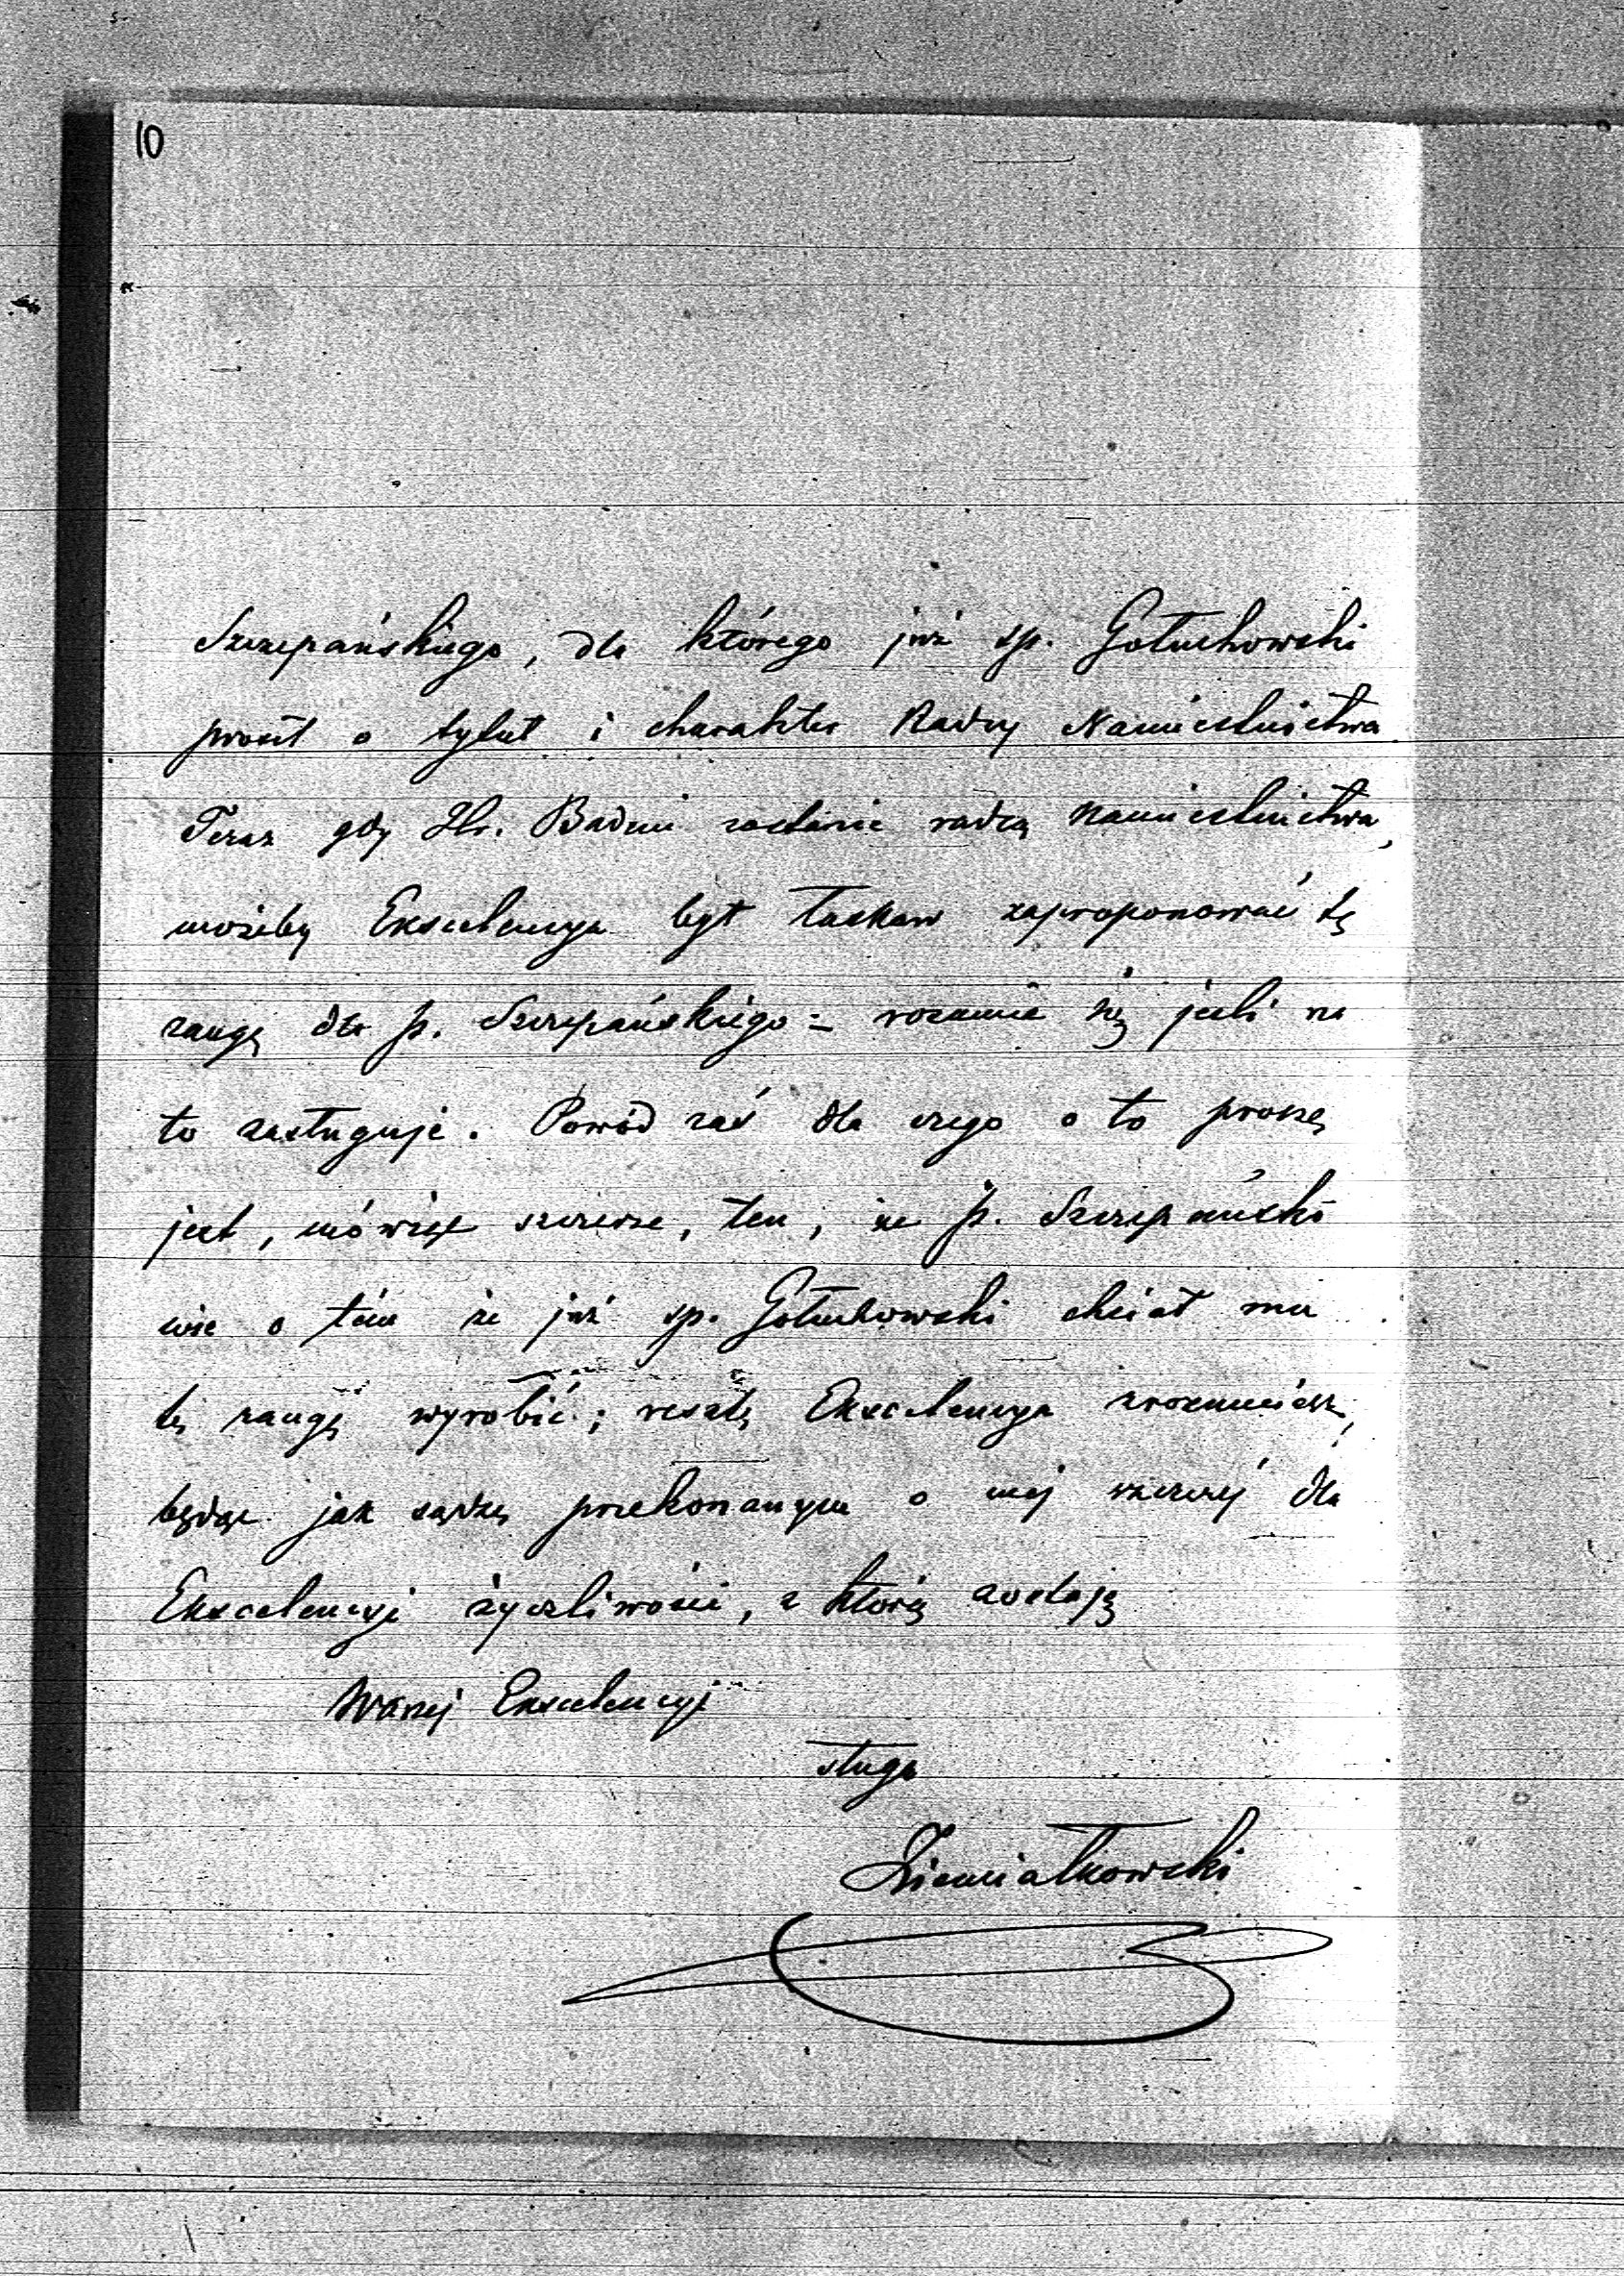 10
Szczepańskiego, dla którego już śp. Gołuchowski
prosił o tytuł i charakter Radcy Namiestnictwa
Teraz gdy Hr. Badeni zostanie radcą Namiestnictwa,
możeby Excelencya był łaskaw zaproponować tę
rangę dla p. Szczepańskiego – rozumie się jeśli na
to zasługuje. Powód zaś dla czego o to proszę
jest, mówiąc szczerze, ten, że p. Szczepański
wie o tém że już śp. Gołuchowski chciał mu
tę rangę wyrobić; resztę Excelencya zrozumiesz,
będąc jak sądzę przekonanym o mej szczerej dla
Excelencyi życzliwości, z którą zostaję
Waszej Excelencyi
sługa
Ziemiałkowski